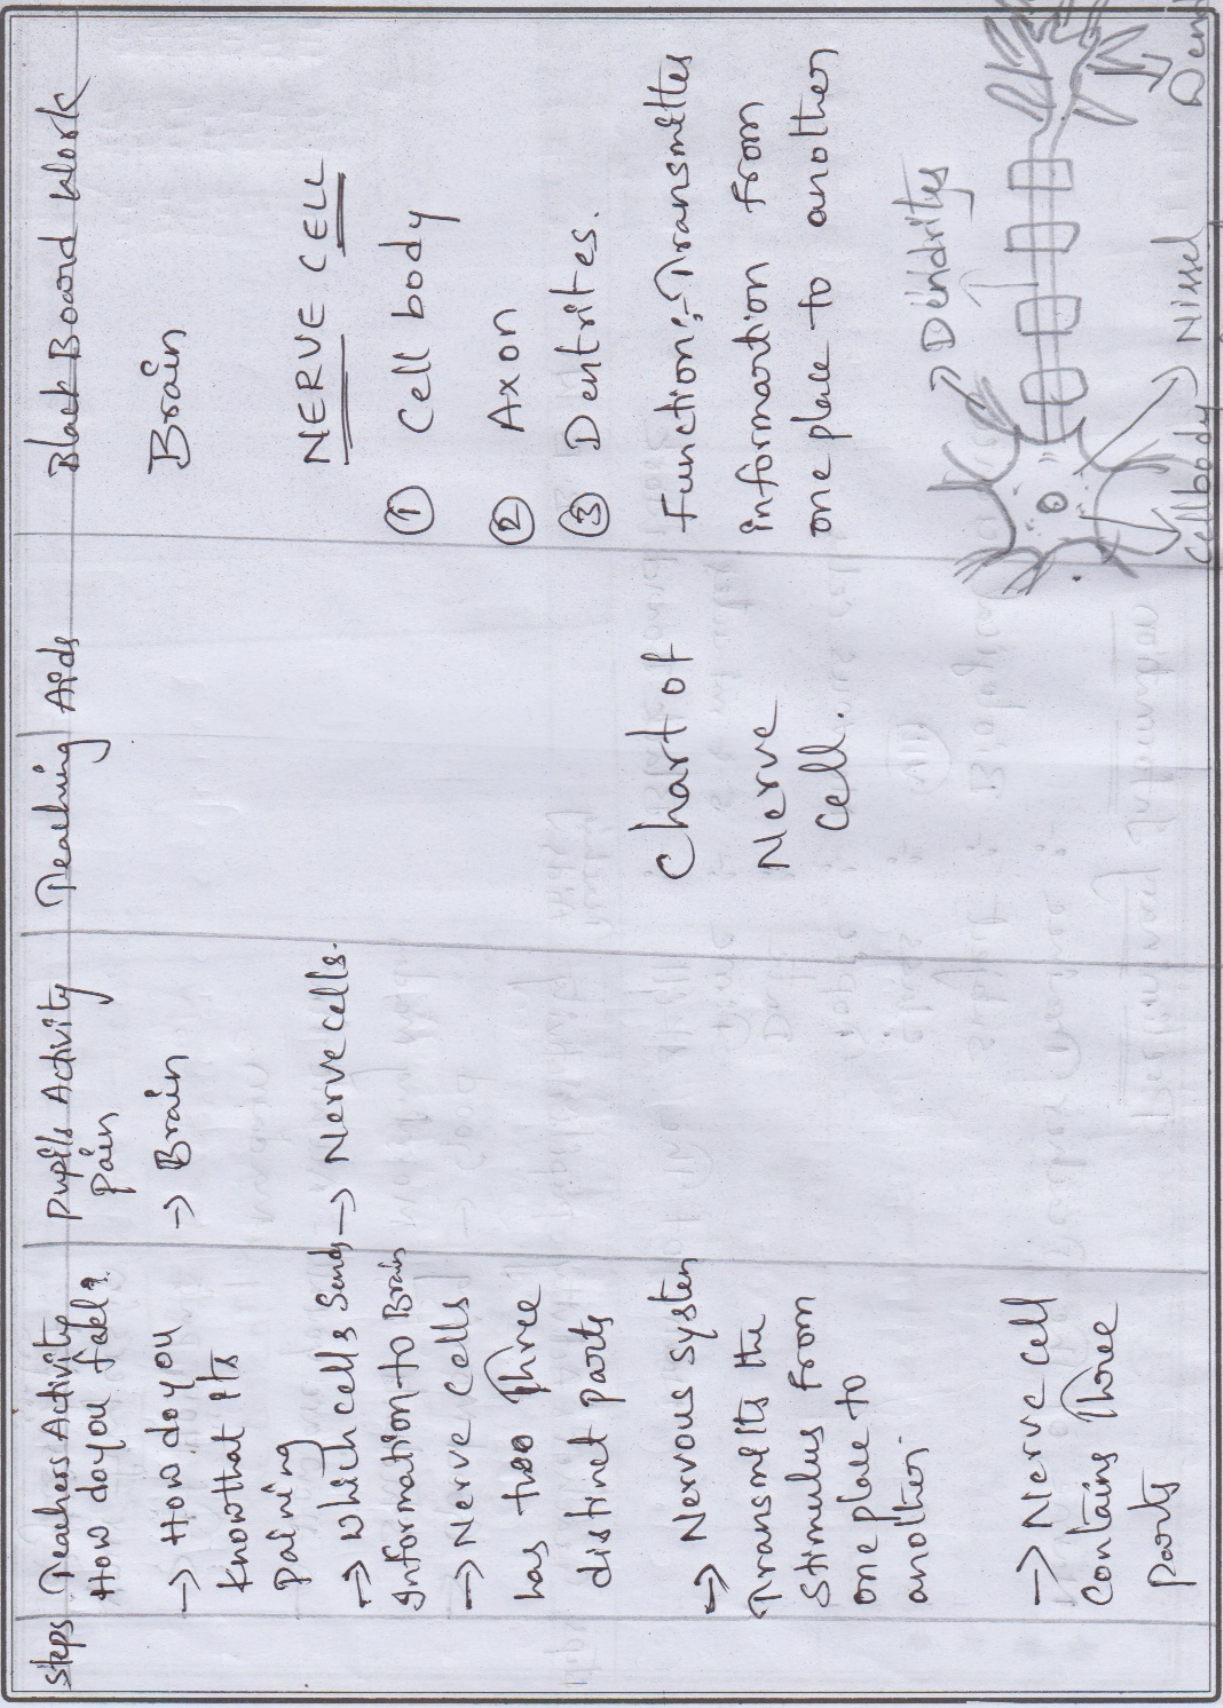 Steps
Teachers Activity
Pupils Activity
Teaching Aids
Black Board Work
How do you fakl?
Pain
→ How do you
Know that its
paining
→ Brain
Brain
→ which cells Sends
Information to Brain
→ Nerve cells.
NERVE CELL
→ Nerve Cells
has Three
distinct parts
① Cell body
② Axon
③ Dentrites.
→ Nervous system
Transmits the
Stimulus From
one place to
another.
Chart of
Nerve
Cell.
Function:- Transmittes
information From
one place to another
→ Nerve cell
Contains Three
parts
→ Dendrites
Cellbody
→ Nissel